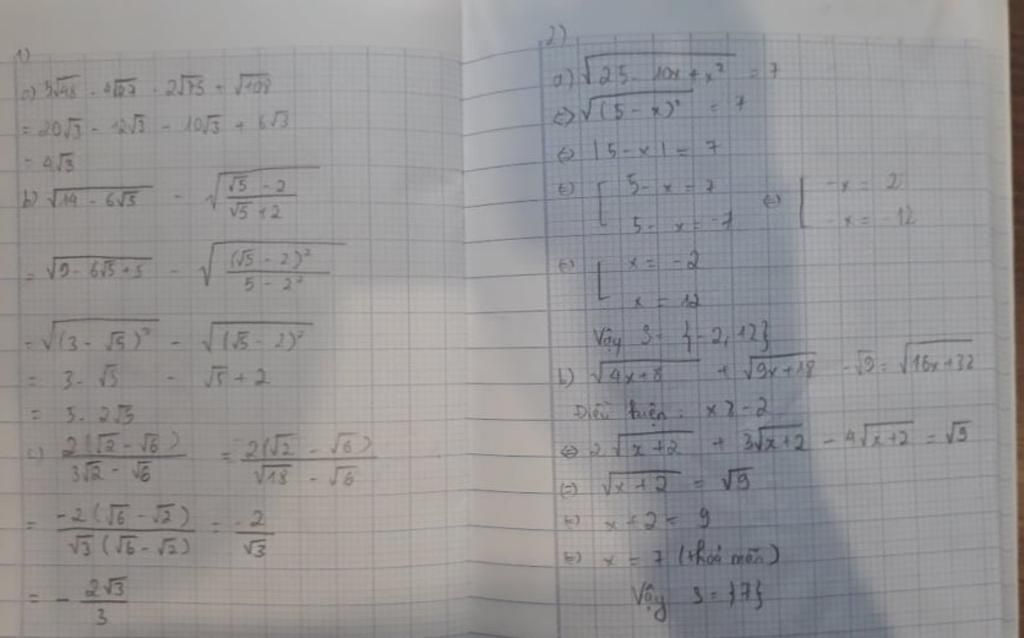 1)
a) 5√48 - 4√27 - 2√75 + √108
= 20√3 - 12√3 - 10√3 + 6√3
= 4√3
b) √(14 - 6√5) - √((√5 - 2)/(√5 + 2))
= √(9 - 6√5 + 5) - √((√5 - 2)²/(5 - 2²))
= √((3 - √5)²) - √((√5 - 2)²)
= 3 - √5 - √5 + 2
= 5 - 2√5
c) 2(√2 - √6)/(3√2 - √6) = 2(√2 - √6)/(√18 - √6)
= -2(√6 - √2)/(√3(√6 - √2)) = -2/√3
= - 2√3/3
2)
a) √(25 - 10x + x²) = 7
⇔ √((5 - x)²) = 7
⇔ |5 - x| = 7
⇔ [ 5 - x = 7 ⇔ [ -x = 2
5 - x = -7 -x = -12
⇔ [ x = -2
x = 12
Vậy S = {-2, 12}
b) √(4x+8) + √(9x+18) - √9 = √(16x+32)
Điều kiện: x ≥ -2
⇔ 2√(x+2) + 3√(x+2) - 4√(x+2) = √9
⇔ √(x+2) = √9
⇔ x + 2 = 9
⇔ x = 7 (thoả mãn)
Vậy S = {7}